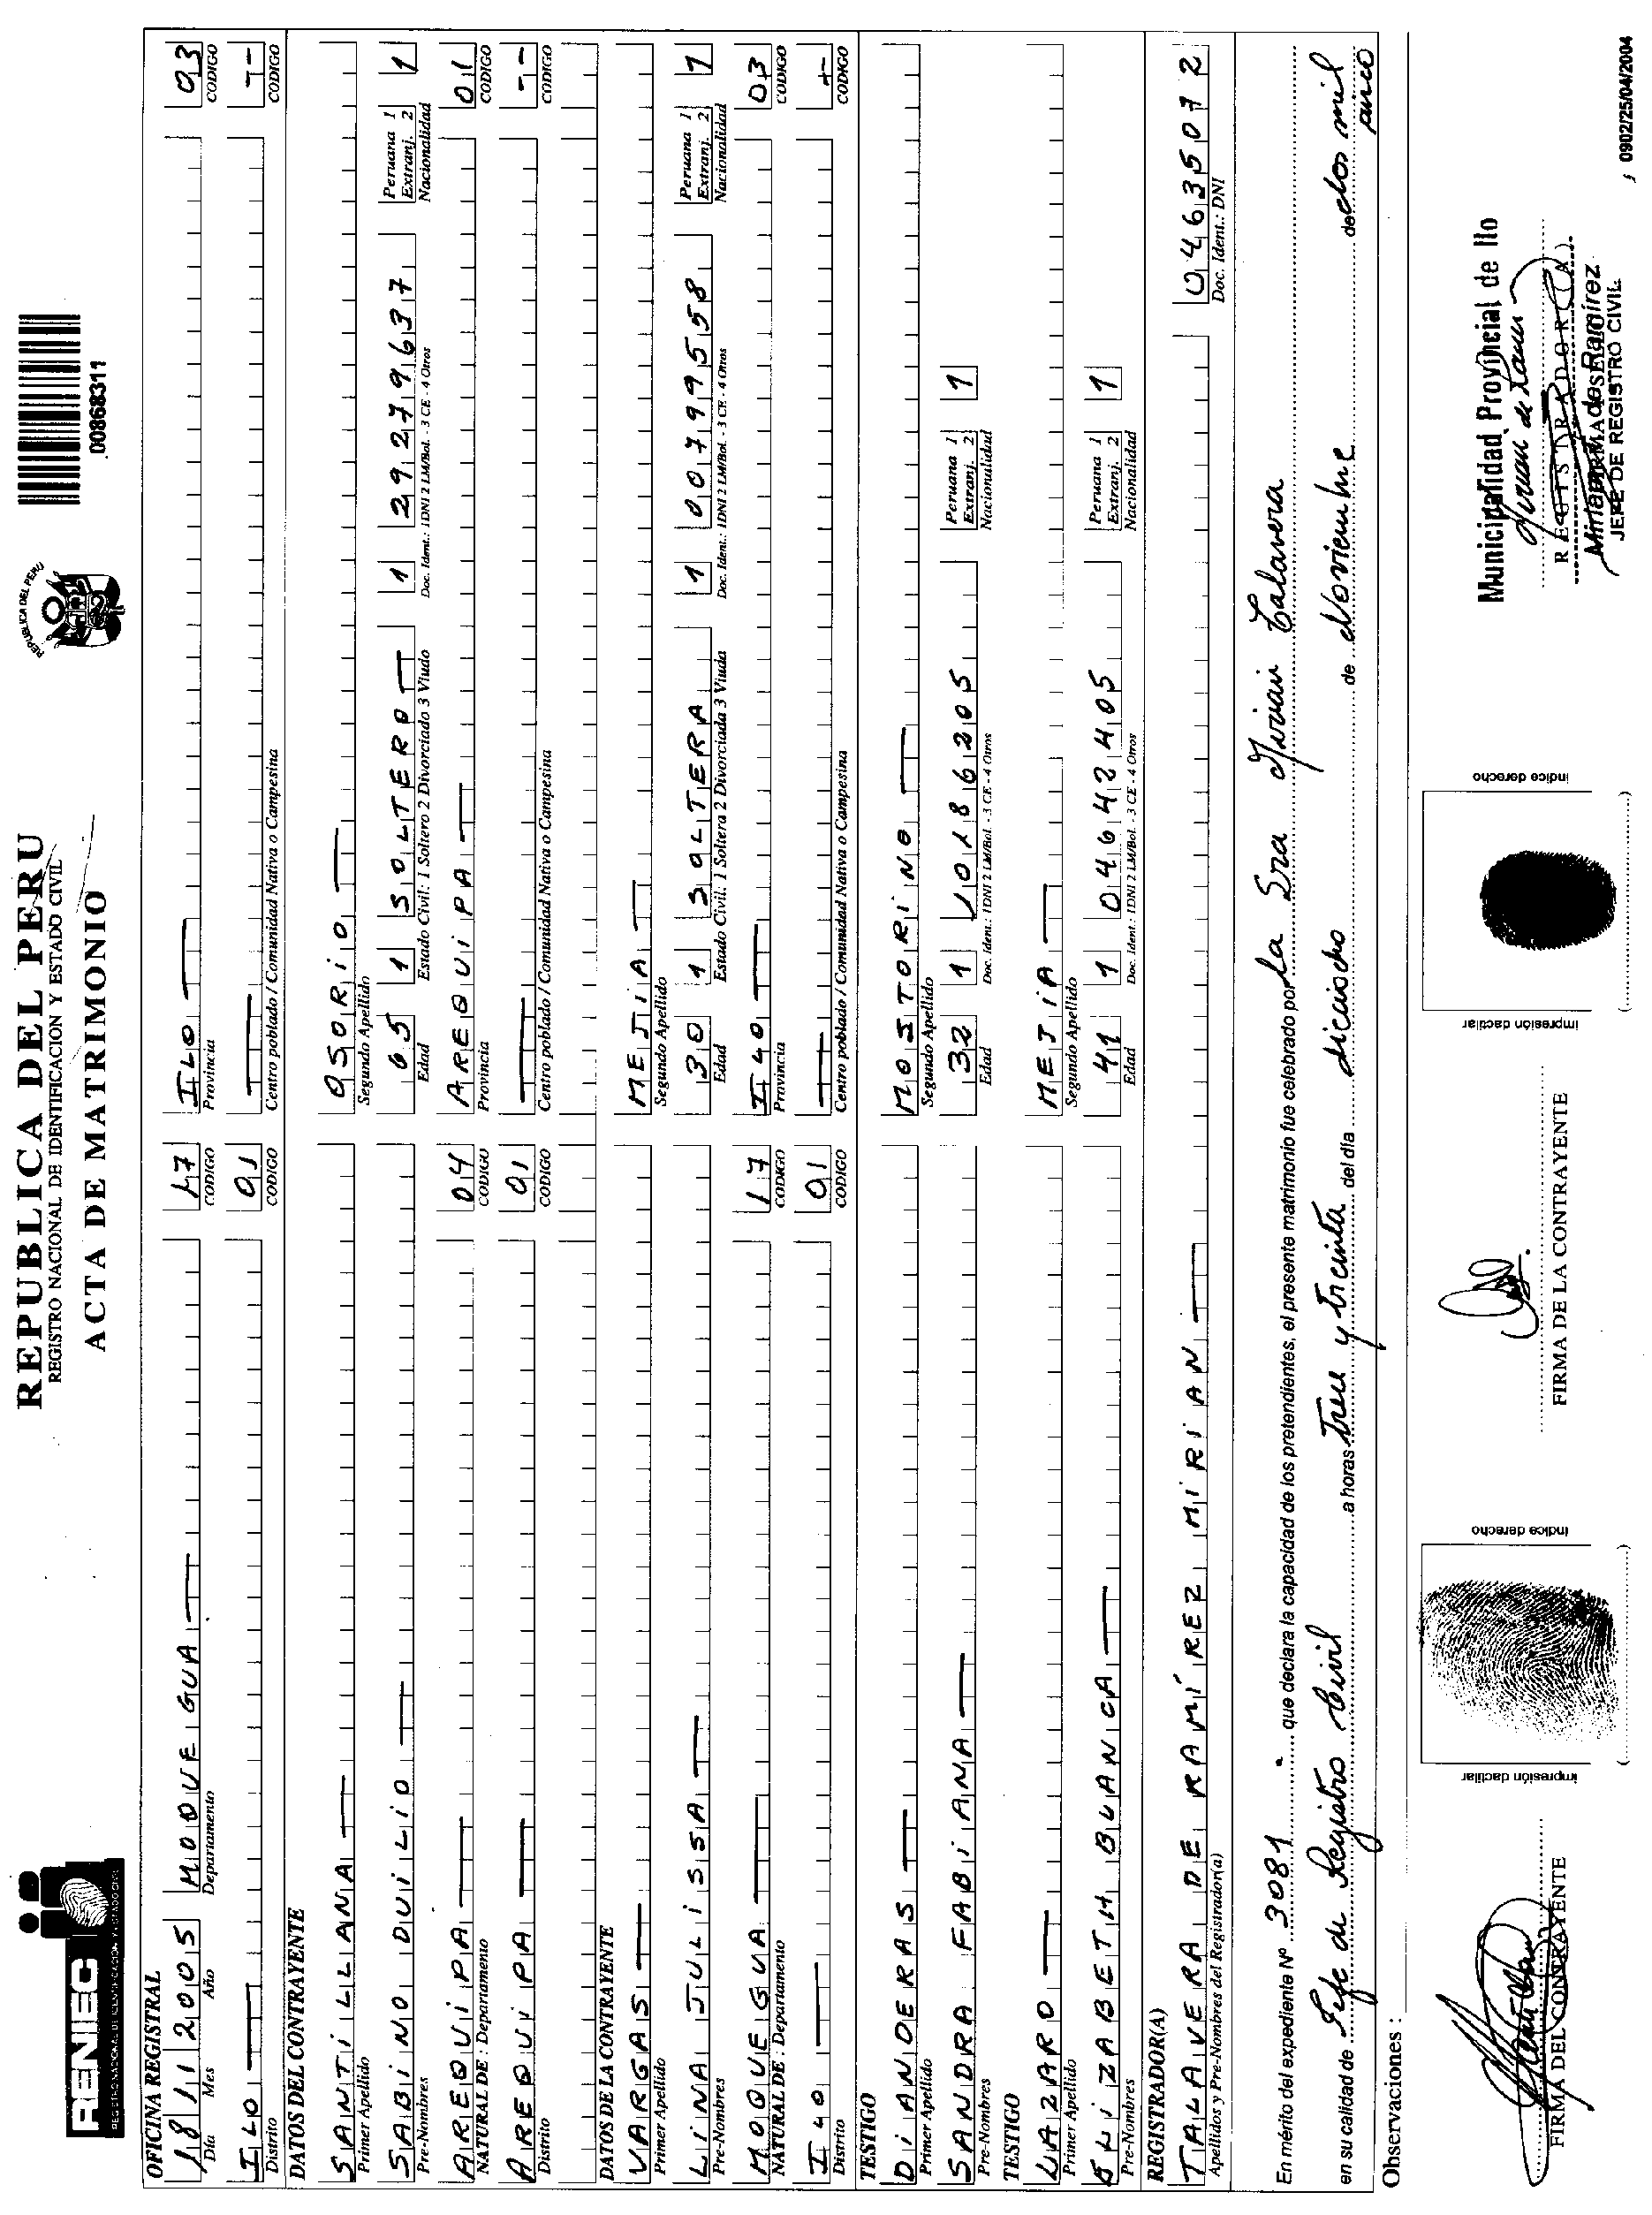 RENIEC
REGISTRO NACIONAL DE IDENTIFICACION Y ESTADO CIVIL
REPUBLICA DEL PERU
REGISTRO NACIONAL DE IDENTIFICACION Y ESTADO CIVIL
ACTA DE MATRIMONIO
REPUBLICA DEL PERU
00868311
OFICINA REGISTRAL
18 11 2005 MOQUEGUA 17 ILO 03
Día Mes Año Departamento CODIGO Provincia CODIGO
ILO 01
Distrito CODIGO Centro poblado / Comunidad Nativa o Campesina CODIGO
DATOS DEL CONTRAYENTE
SANTILLANA OSORIO
Primer Apellido Segundo Apellido
SABINO DUILIO 65 1 SOLTERO 1 29279637 Peruana 1 Extranj. 2 1
Pre-Nombres Edad Estado Civil: 1 Soltero 2 Divorciado 3 Viudo Doc. Ident.: 1DNI 2 LM/Bol. - 3 CE - 4 Otros Nacionalidad
AREQUIPA 04 AREQUIPA 01
NATURAL DE : Departamento CODIGO Provincia CODIGO
AREQUIPA 01
Distrito CODIGO Centro poblado / Comunidad Nativa o Campesina CODIGO
DATOS DE LA CONTRAYENTE
VARGAS MEJIA
Primer Apellido Segundo Apellido
LINA JULISSA 30 1 SOLTERA 1 00799558 Peruana 1 Extranj. 2 1
Pre-Nombres Edad Estado Civil: 1 Soltera 2 Divorciada 3 Viuda Doc. Ident.: 1DNI 2 LM/Bol. - 3 CE - 4 Otros Nacionalidad
MOQUEGUA 17 ILO 03
NATURAL DE : Departamento CODIGO Provincia CODIGO
ILO 01
Distrito CODIGO Centro poblado / Comunidad Nativa o Campesina CODIGO
TESTIGO
DIANDERAS MOSTORINO
Primer Apellido Segundo Apellido
SANDRA FABIANA 32 1 10186205 Peruana 1 Extranj. 2 1
Pre-Nombres Edad Doc. Ident.: 1DNI 2 LM/Bol. - 3 CE - 4 Otros Nacionalidad
TESTIGO
LAZARO MEJIA
Primer Apellido Segundo Apellido
ELIZABETH BLANCA 41 1 04642405 Peruana 1 Extranj. 2 1
Pre-Nombres Edad Doc. Ident.: 1DNI 2 LM/Bol. - 3 CE - 4 Otros Nacionalidad
REGISTRADOR(A)
TALAVERA DE RAMÍREZ MIRIAN 04635072
Apellidos y Pre-Nombres del Registrador(a) Doc. Ident.: DNI
En mérito del expediente Nº 3081 que declara la capacidad de los pretendientes, el presente matrimonio fue celebrado por la Sra Mirian Talavera
en su calidad de Jefe de Registro Civil a horas Trece y treinta del día dieciocho de Noviembre de dos mil
cinco
Observaciones :
impresión dactilar índice derecho
impresión dactilar índice derecho
FIRMA DEL CONTRAYENTE
FIRMA DE LA CONTRAYENTE
Municipalidad Provincial de Ilo
REGISTRADOR(A)
JEFE DE REGISTRO CIVIL
0902/25/04/2004